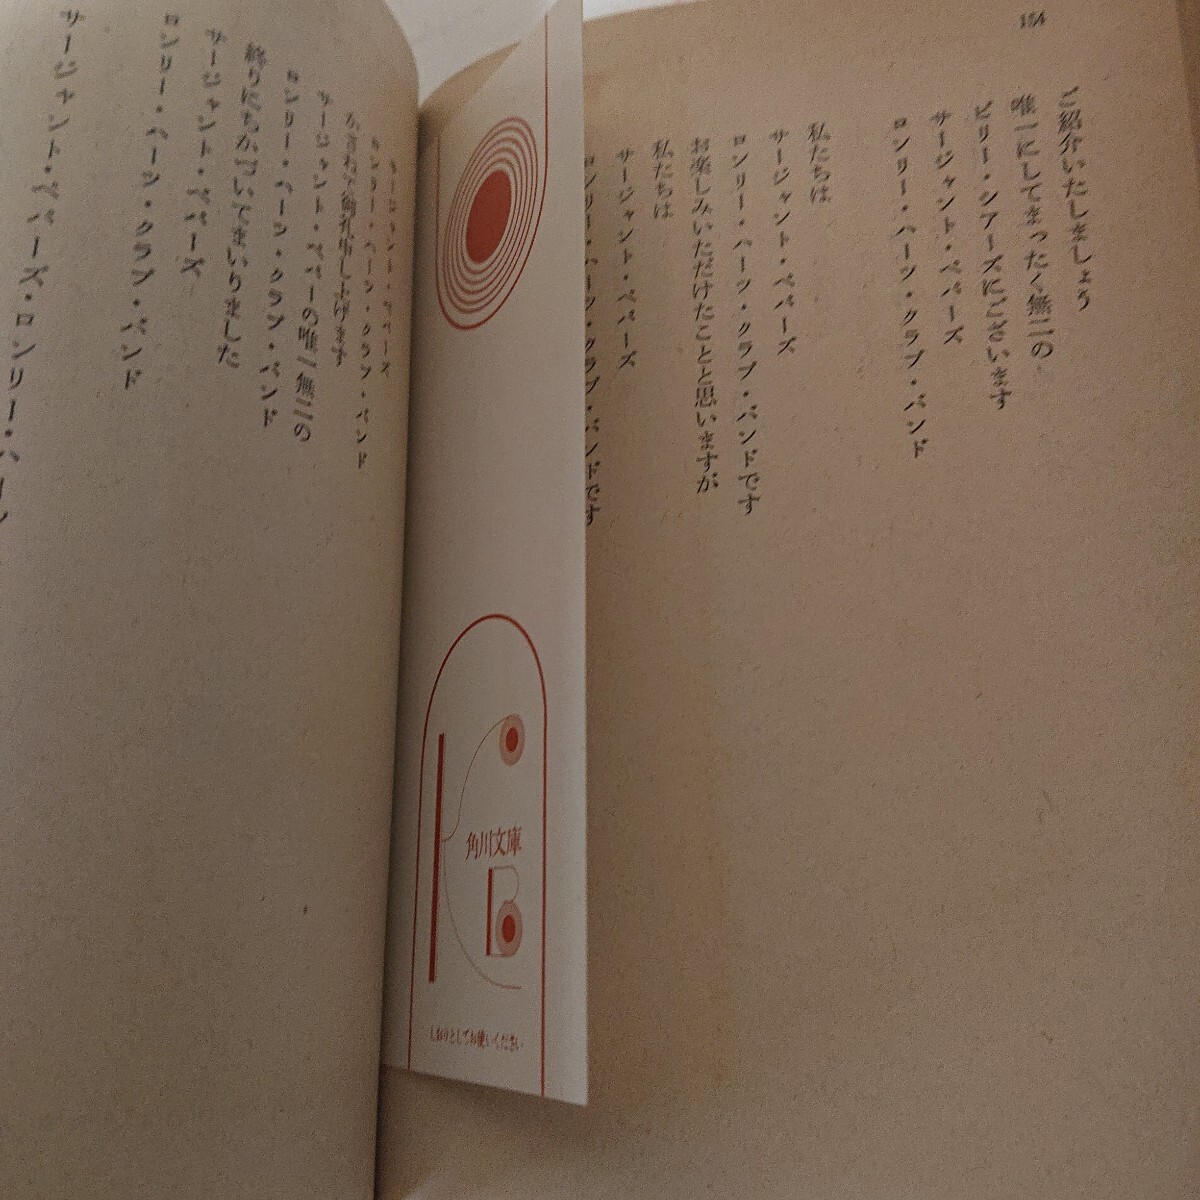 154
ご紹介いたしましょう
唯一にしてまったく無二の
ビリー・シアーズにございます
サージャント・ペパーズ
ロンリー・ハーツ・クラブ・バンド
私たちは
サージャント・ペパーズ
ロンリー・ハーツ・クラブ・バンドです
お楽しみいただけたことと思いますが
私たちは
サージャント・ペパーズ
ロンリー・ハーツ・クラブ・バンドです
角川文庫
しおりとしてお使いください
サージャント・ペパーズ
ロンリー・ハーツ・クラブ・バンド
かさねて御礼申し上げます
サージャント・ペパーの唯一無二の
ロンリー・ハーツ・クラブ・バンド
終りにちかづいてまいりました
サージャント・ペパーズ
ロンリー・ハーツ・クラブ・バンド
サージャント・ペパーズ・ロンリー・ハーツ